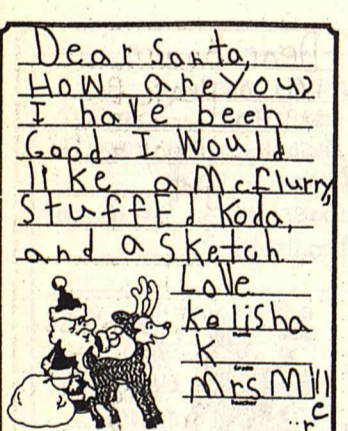 Dear Santa,
How are you?
I have been
Good. I Would
like a Mcflurry,
stuffEd Koda,
and a sketch
Love
Kelisha
Name
K
Grade
Mrs Miller
Teacher